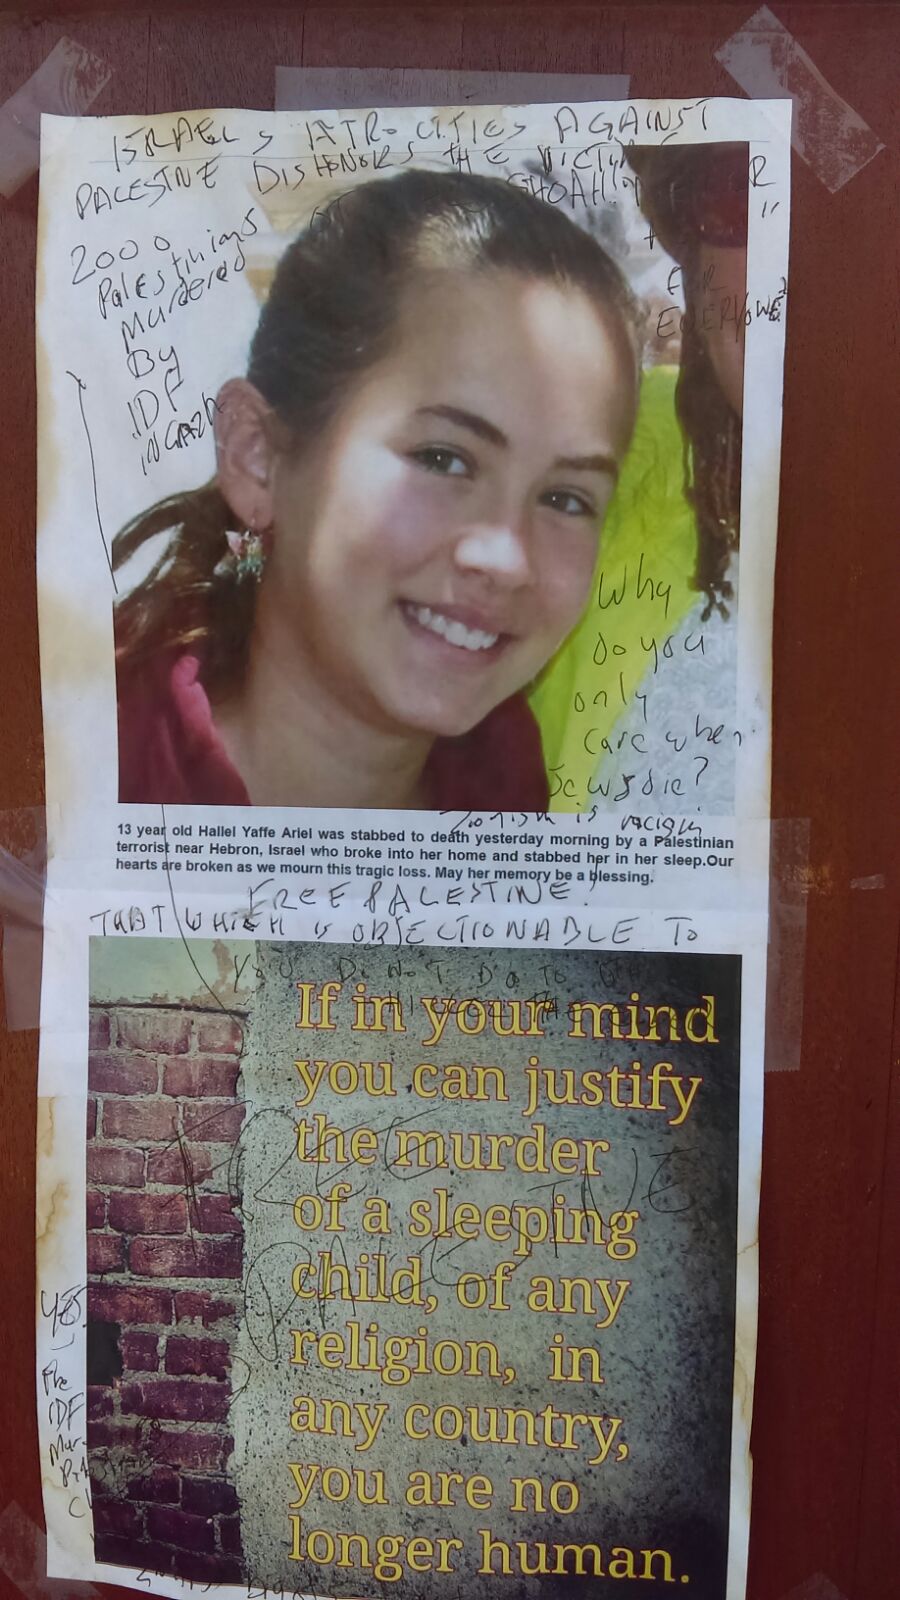 ISRAEL'S ATROCITIES AGAINST
PALESTINE DISHONORS THE VICTIMS
SHOAH
2000
Palestinians
Murdered
By
IDF
IN GAZA
FOR
EVERYONE"
Why
do you
only
care when
Jews die?
Zionism is racism
13 year old Hallel Yaffe Ariel was stabbed to death yesterday morning by a Palestinian
terrorist near Hebron, Israel who broke into her home and stabbed her in her sleep.Our
hearts are broken as we mourn this tragic loss. May her memory be a blessing.
FREE PALESTINE!
THAT WHICH is OBJECTIONABLE TO
YOU DO NOT DO TO
If in your mind
you can justify
the murder
of a sleeping
child, of any
religion, in
any country,
you are no
longer human.
FREE
PALESTINE
YES
The
IDF